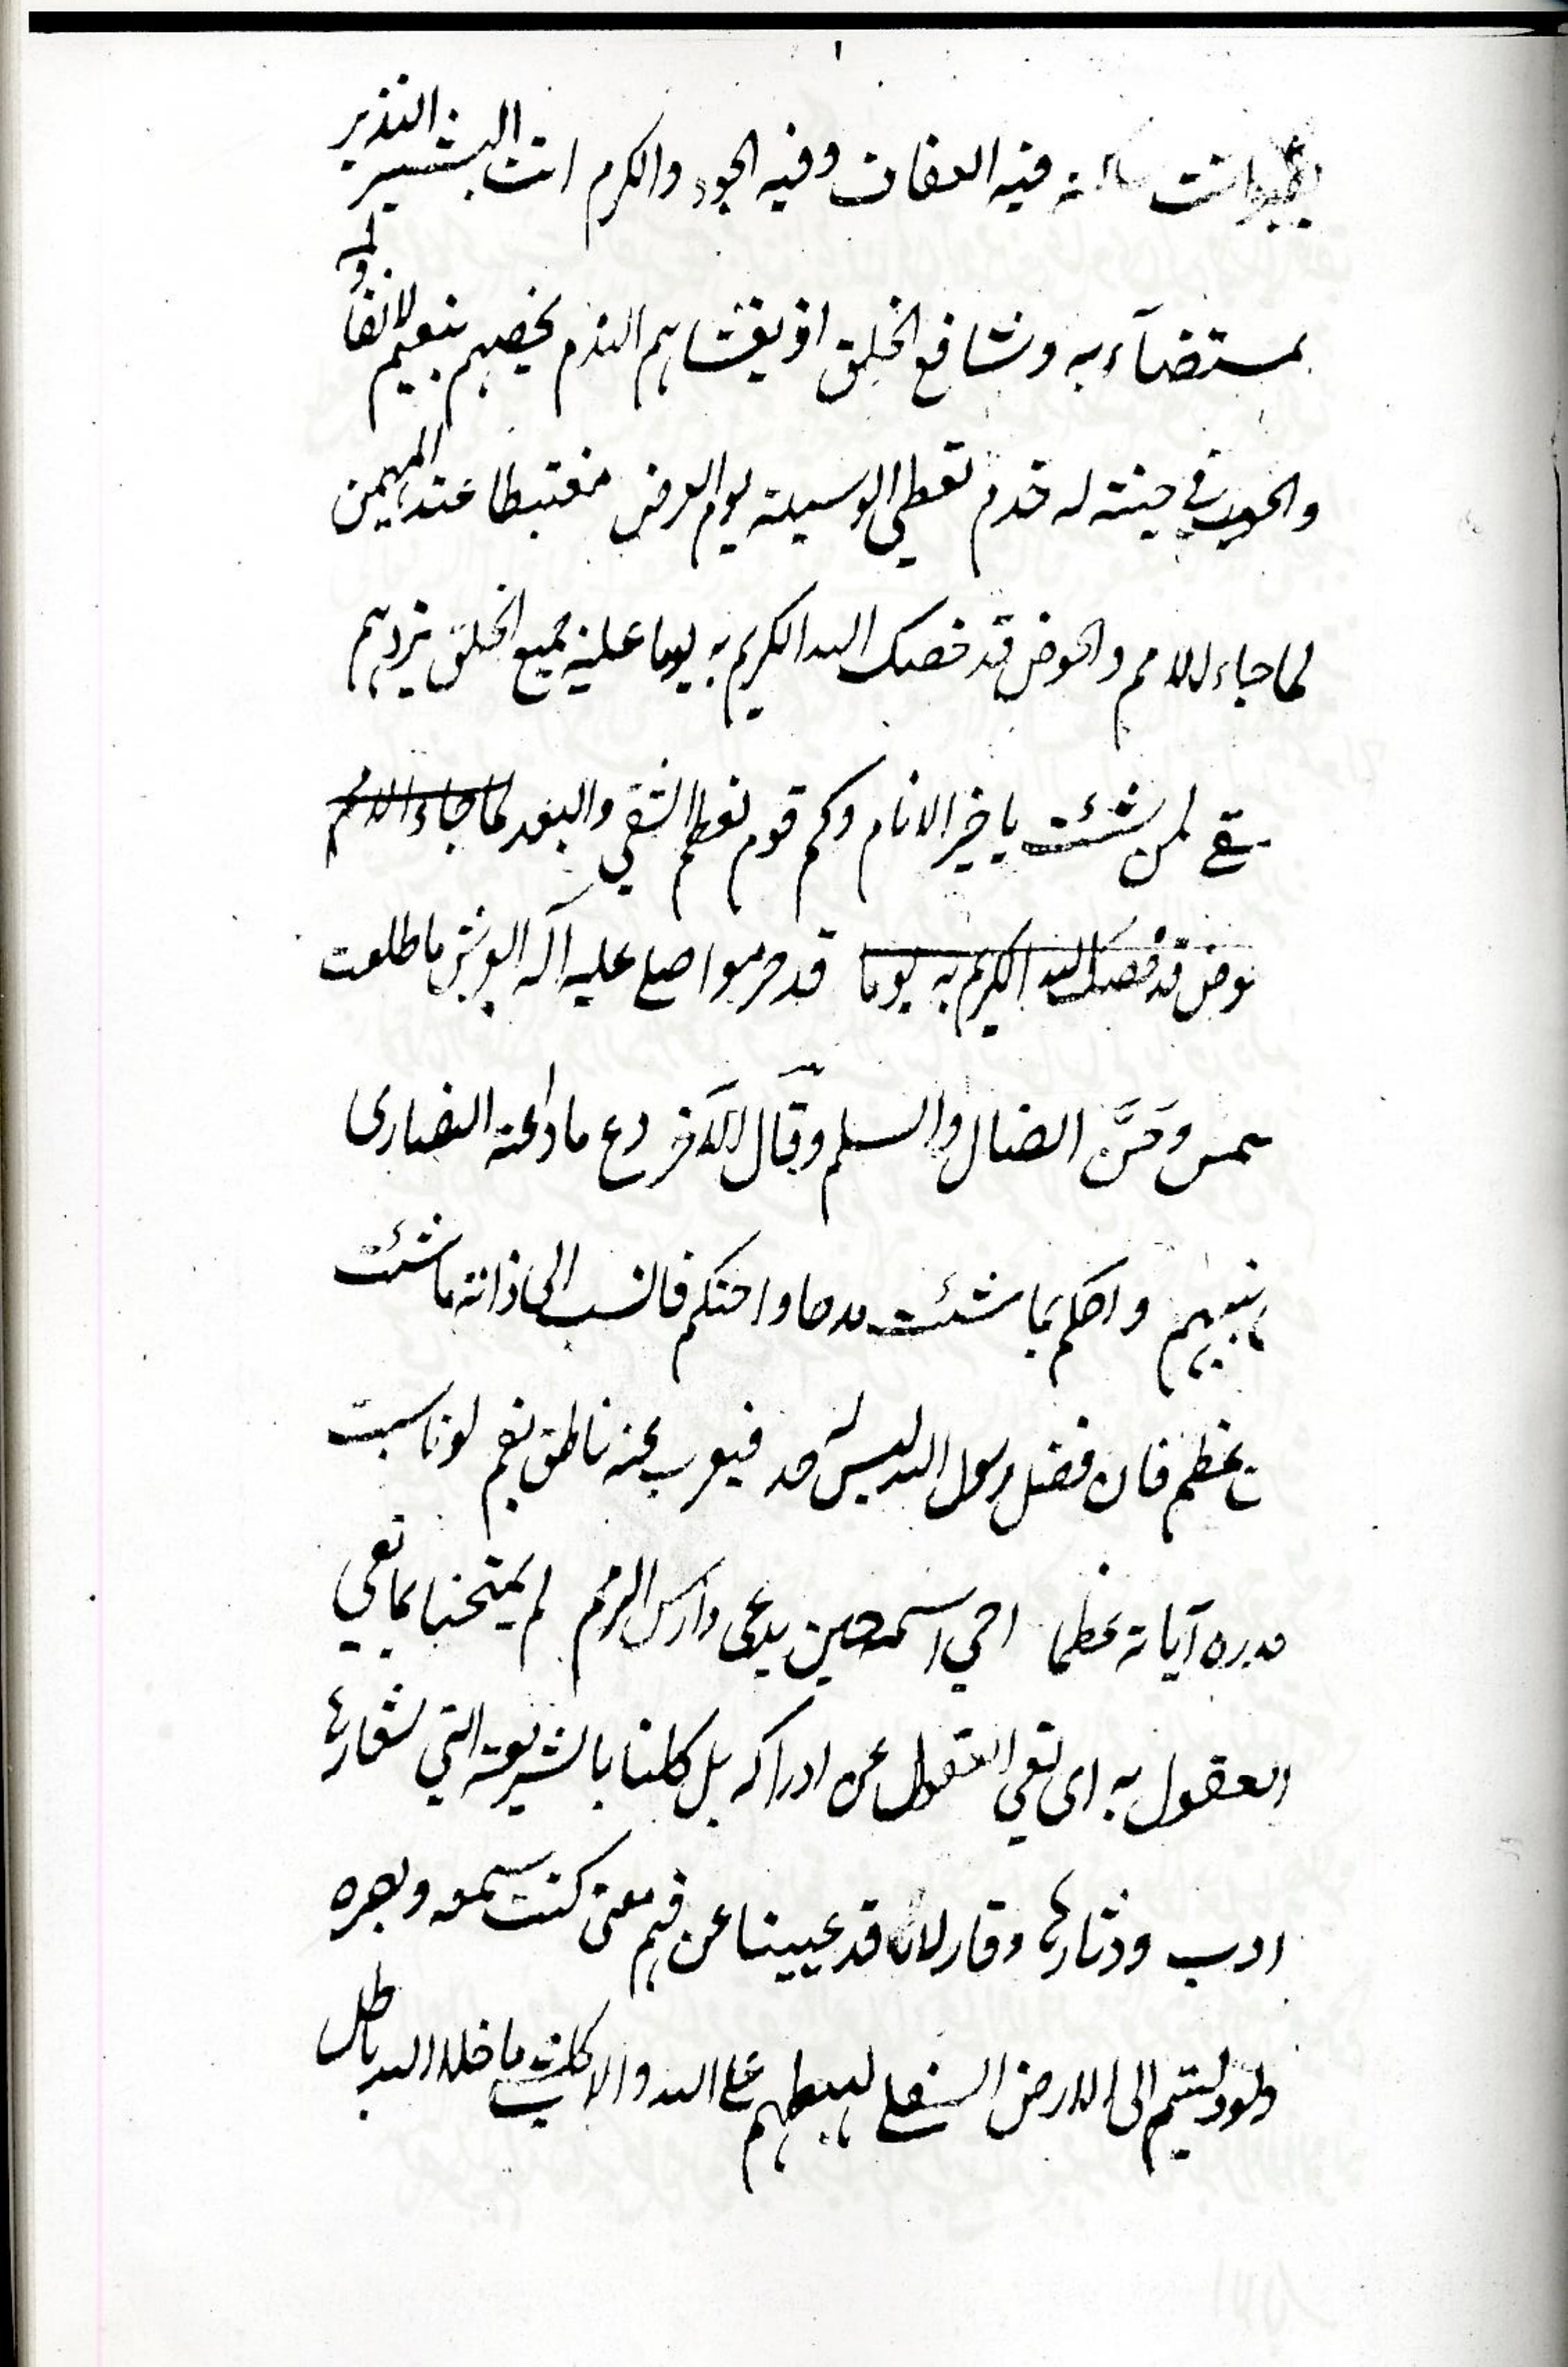 ١
انت ساكنه فيه العفاف وفيه الجود والكرم انت البشير النذير
لمستضآء به وشافع الخلق اذ يغشاهم الندم يخصهم بنعيم لا نفاد له
والحور في جنته له خدم تعطي الوسيلة يوم العرض مغتبطا عند المهيمن
لما جاء الامم والحوض قد خصك الله الكريم به يوما عليه جميع الخلق يزدهم
لمن شئت يا خير الانام وكم قوم لعظم الشقي والبعد لما جاء الامم
وض قد خصك الله الكريم به يوما قد حرموا صلى عليه آله العرش ما طلعت
شمس وحنَّ الضال والسلم وقال الآخر دع ما ادعته النصارى
نبيهم واحكم بما شئت مدحا واحتكم فانسب الى ذاته ما شئت
عظم فان فضل رسول الله ليس له حد فيعرب عنه ناطق بفم لو ناسبت
قدره آياته عظما احي اسمه حين يدعى دارس الرمم لم يمتحنا بما تعي
العقول به اى تعي العقول عن ادراكه بل كلنا بالشريعة التي شعارها
ادب ودثارها وقار لانا قد عيينا عن فهم معنى كنت سمعه وبصره
ولو دليتم الى الارض السفلى لهبطهم على الله والا كل شي ما خلا الله باطل